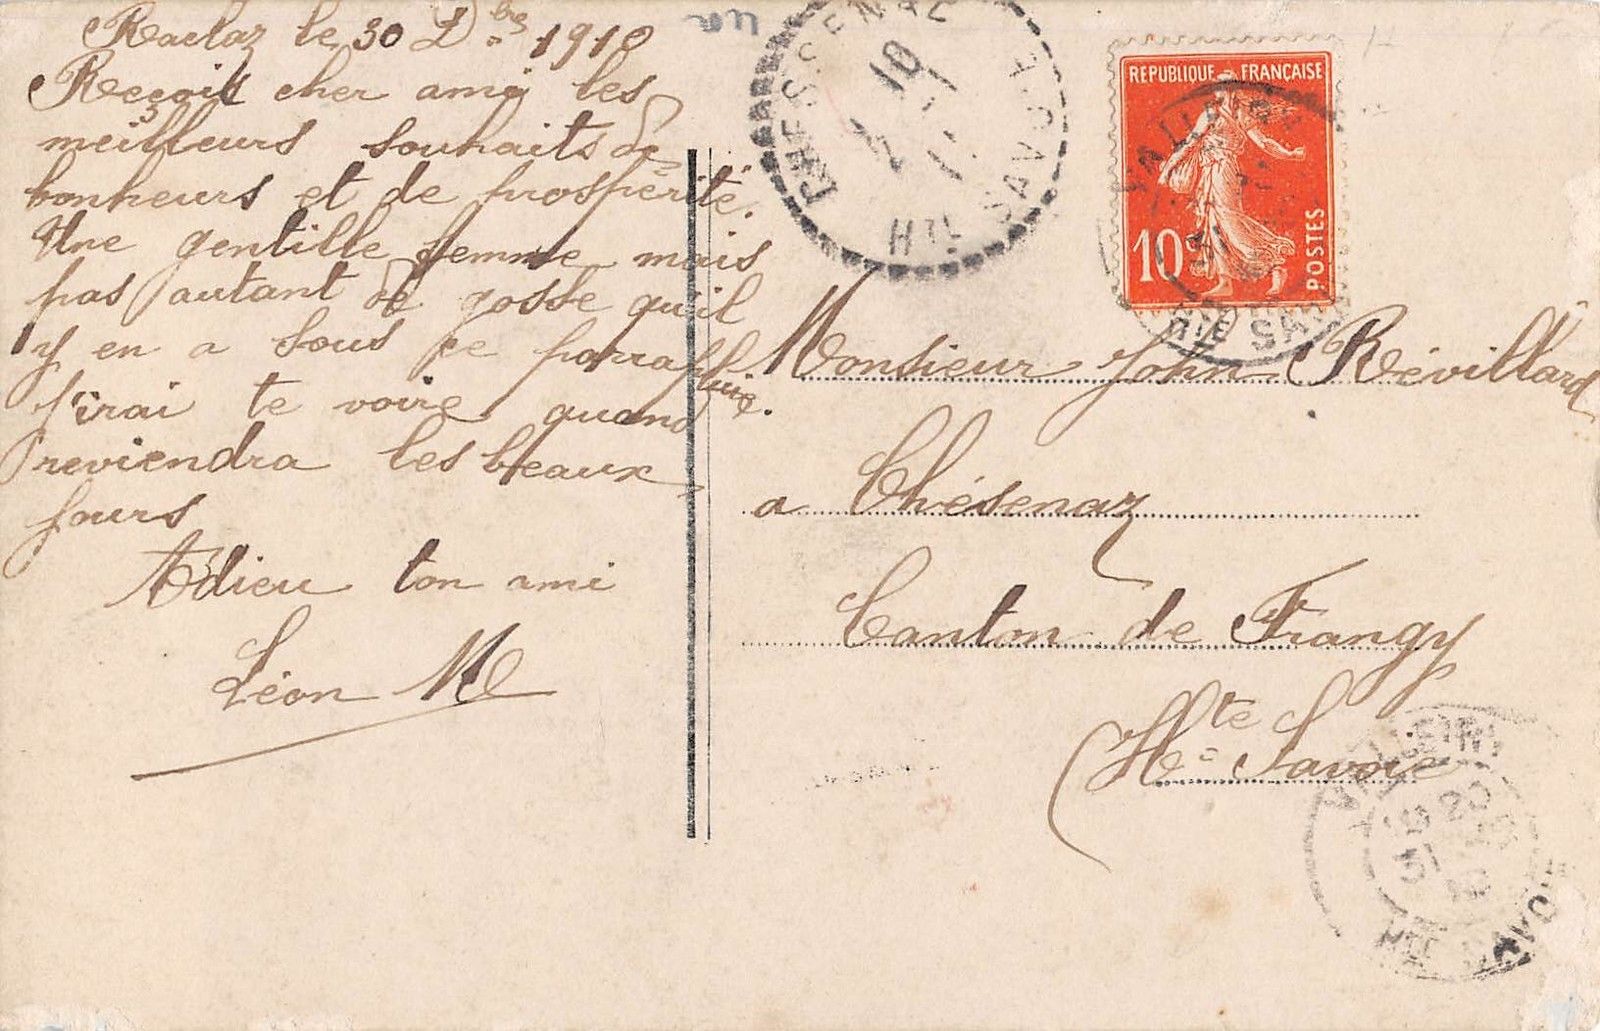 Raclaz le 30 Dbre 1910
Reçois cher ami les
meilleurs souhaits de
bonheurs et de prospérité.
Une gentille femme mais
pas autant de gosse qu'il
y en a sous ce parrapluie.
J'irai te voire quand
reviendra les beaux
jours
Adieu ton ami
Léon M
REPUBLIQUE FRANÇAISE
10c
POSTES
Monsieur John Révillard
a Chésenaz
Canton de Frangy
Hte Savoie
HTE SAVOIE